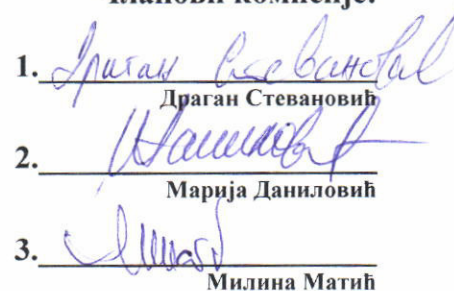 чланови комисије:
1. Драган Стевановић
Драган Стевановић
2.
Марија Даниловић
3.
Милина Матић